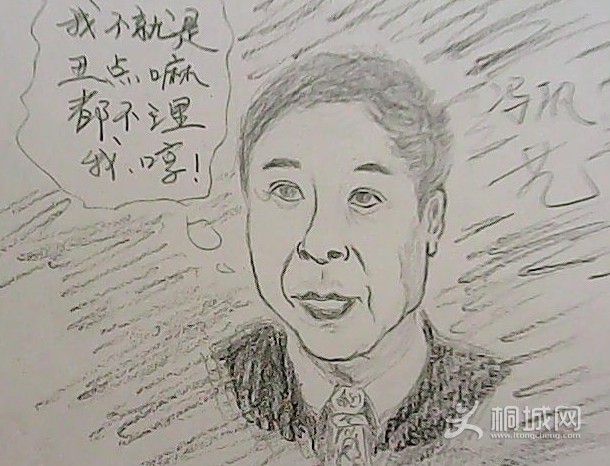 我不就是
丑点嘛
都不理
我、哼!
冯巩
桐城网
www.itongcheng.com